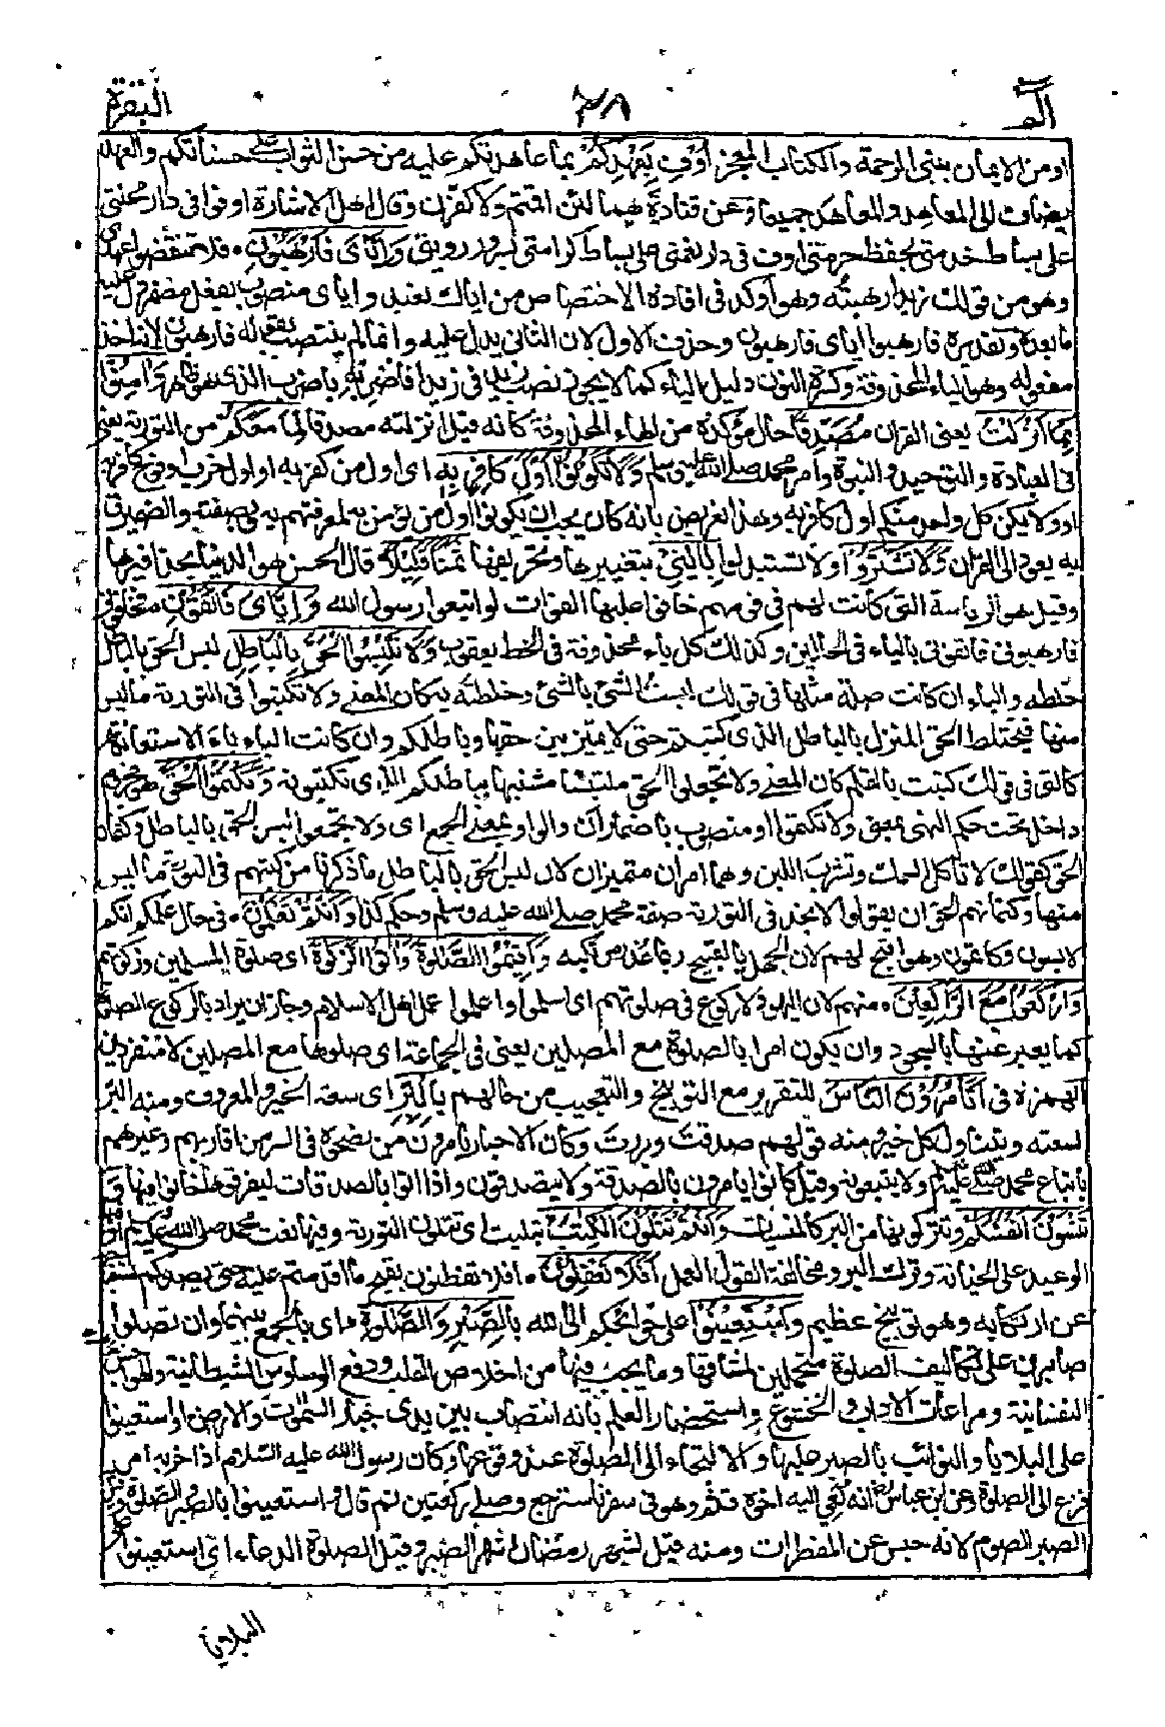 الم ٣٨ البقرة
او من الايمان بنبى الرحمة والكتاب المعجز اُوْفِ بِعَهْدِكُمْ بما عاهدتكم عليه من حسن الثواب على حسناتكم والعهد
يضاف الى المعاهِد والمعاهَد جميعا وعن قتادة هما لئن اقمتم ولاكفرن وقال اهل الاشارة اوفوا فى دار محنتى
على بساط خدمتى بحفظ حرمتى اوف فى دار نعمتى على بساط كرامتى بسرور رويتى وَاِيَّاىَ فَارْهَبُوْنِ ۰ فلا تنقضوا عهدى
وهو من قولك زيدا رهبته وهو اوكد فى افادة الاختصاص من اياك نعبد واياى منصوب بفعل مضمر دل عليه
ما بعده وتقديره فارهبوا اياى فارهبون وحذف الاول لان الثانى يدل عليه وانما لم ينتصب بقوله فارهبون لانه اخذ
مفعوله وهو الياء المحذوفة وكسرة النون دليل الياء كما لا يجوز نصب زيد فى زيدا فاضربه باضرب الذى هو ظاهر وَاٰمِنُوْا
بِمَا اَنْزَلْتُ يعنى القرآن مُصَدِّقًا حال مؤكدة من الهاء المحذوفة كانه قيل انزلته مصدقا لِمَا مَعَكُمْ من التورية يعنى
فى العبادة والتوحيد والنبوة وامر محمد صلى الله عليه وسلم وَلَا تَكُوْنُوْٓا اَوَّلَ كَافِرٍۭ بِهٖ اى اول من كفر به او اول حزب او فوج كافر به
او ولا يكن كل واحد منكم اول كافر به وهذا تعريض بانه كان يجب ان يكونوا اول من يؤمن به لمعرفتهم به وبصفته والضمير فى
به يعود الى القرآن وَلَا تَشْتَرُوْا ولا تستبدلوا بِاٰيٰتِىْ بتغييرها وتحريفها ثَمَنًا قَلِيْلًا قال الحسن هو الدنيا بحذافيرها
وقيل هو الرياسة التى كانت لهم فى قومهم خافوا عليها الفوات لو اتبعوا رسول الله وَاِيَّاىَ فَاتَّقُوْنِ فخافونى
فارهبونى فاتقونى بالياء فى الحالين وكذلك كل ياء محذوفة فى الخط يعقوب وَلَا تَلْبِسُوا الْحَقَّ بِالْبَاطِلِ لبس الحق بالباطل
خلطه والباء ان كانت صلة مثلها فى قولك لبست الشئ بالشئ وخلطته به كان المعنى ولا تكتبوا فى التورية ما ليس
منها فيختلط الحق المنزل بالباطل الذى كتبتم حتى لا يميز بين حقها وباطلكم وان كانت الباء باء الاستعانة
كالتى فى قولك كتبت بالقلم كان المعنى ولا تجعلوا الحق ملتبسا مشتبها بباطلكم الذى تكتبونه وَتَكْتُمُوا الْحَقَّ هو مجزوم
داخل تحت حكم النهى بمعنى ولا تكتموا او منصوب باضمار ان والواو بمعنى الجمع اى ولا تجمعوا لبس الحق بالباطل وكتمان
الحق كقولك لا تأكل السمك وتشرب اللبن وهما امران متميزان لان لبس الحق بالباطل ما ذكرنا من كتبهم فى التورية ما ليس
منها وكتمانهم الحق ان يقولوا لا نجد فى التورية صفة محمد صلى الله عليه وسلم وحكم كذا وَاَنْتُمْ تَعْلَمُوْنَ ۰ فى حال علمكم انكم
لابسون وكاتمون وهو اقبح لهم لان الجهل بالقبيح ربما عذر مرتكبه وَاَقِيْمُوا الصَّلٰوةَ وَاٰتُوا الزَّكٰوةَ اى صلوة المسلمين وزكوتهم
وَارْكَعُوْا مَعَ الرّٰكِعِيْنَ ۰ منهم لان اليهود لا ركوع فى صلوتهم اى اسلموا واعملوا عمل اهل الاسلام وجاز ان يراد بالركوع الصلوة
كما يعبر عنها بالسجود وان يكون امرا بالصلوة مع المصلين يعنى فى الجماعة اى صلوها مع المصلين لا منفردين
الهمزة فى اَتَاْمُرُوْنَ النَّاسَ للتقرير مع التوبيخ والتعجيب من حالهم بِالْبِرِّ اى سعة الخير والمعروف ومنه البر
لسعته ويتناول كل خير ومنه قولهم صدقت وبررت وكان الاحبار يامرون من نصحوه فى السر من اقاربهم وغيرهم
باتباع محمد صلى الله عليه وسلم ولا يتبعونه وقيل كانوا يامرون بالصدقة ولا يتصدقون واذا اتوا بالصدقات ليفرقوها خانوا فيها وَ
تَنْسَوْنَ اَنْفُسَكُمْ وتتركونها من البر كالمنسيات وَاَنْتُمْ تَتْلُوْنَ الْكِتٰبَ تبكيت اى تتلون التورية وفيها نعت محمد صلى الله عليه وسلم او
الوعيد على الخيانة وترك البر ومخالفة القول العمل اَفَلَا تَعْقِلُوْنَ ۰ افلا تفطنون بقبح ما اقدمتم عليه حتى يصدكم استقباحه
عن ارتكابه وهو توبيخ عظيم وَاسْتَعِيْنُوْا على حوائجكم الى الله بِالصَّبْرِ وَالصَّلٰوةِ اى بالجمع بينهما وان تصلوا
صابرين على تكاليف الصلوة محتملين لمشاقها وما يجب فيها من اخلاص القلب ودفع الوساوس الشيطانية والهواجس
النفسانية ومراعات الاداب والخشوع واستحضار العلم بانه انتصاب بين يدى جبار السموات والارض او استعينوا
على البلايا والنوائب بالصبر عليها والالتجاء الى الصلوة عند وقوعها وكان رسول الله عليه السلام اذا حزبه امر
فزع الى الصلوة وعن ابن عباس رضى انه نعى اليه اخوه قثم وهو فى سفر فاسترجع وصلى ركعتين ثم قال واستعينوا بالصبر والصلوة وقيل
الصبر الصوم لانه حبس عن المفطرات ومنه قيل لشهر رمضان شهر الصبر وقيل الصلوة الدعاء اى استعينوا على
البلايا